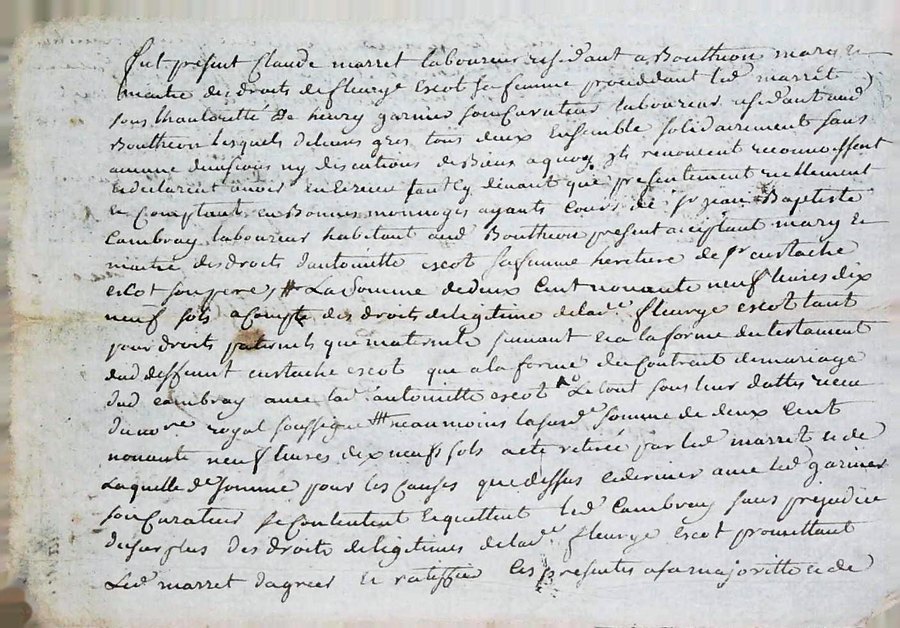 fut present Claude marret laboureur residant a Boutheon mary et
maitre des droits de fleurye escot sa femme proceddant led marret
sous lhautoritté de henry garnier son Curateur laboureur residant aud
Boutheon lesquels de leurs gres tous deux Ensemble solidairement sans
aucune division ny discutions de Biens a quoy ils renoncent reconnoissent
et declarent avoir eu et receu par cy devant que presentement reellement
et Comptant en Bonnes monnoyes ayants Cours de sr jean Baptiste
Cambray laboureur habitant aud Boutheon present acceptant mary et
maitre des droits dantoinette escot sa femme heritiere de sr eustache
escot son pere # La somme de deux Cent nonante neuf livres dix
neuf sols a Compte des droits de legitime de lade fleurye escot tant
pour droits paternels que maternels suivant et a la forme du testament
dud deffunt eustache escot que a la forme du Contrait de mariage
dud Cambray avec lad antoinette escot Le tout sous leur dattes receu
du nore royal soussigné # neanmoins la susde somme de deux Cent
nonante neuf livres dix neuf sols a eté retirée par led marret et de
Laquelle de somme pour les Causes que dessus ce dernier avec led garnier
son Curateur se Contentent et quittent led Cambray sans prejudice
du surplus des droits de legitimes de lade fleurye escot promettant
Led marret dagreer et ratiffier les presentes a sa majoritté et de